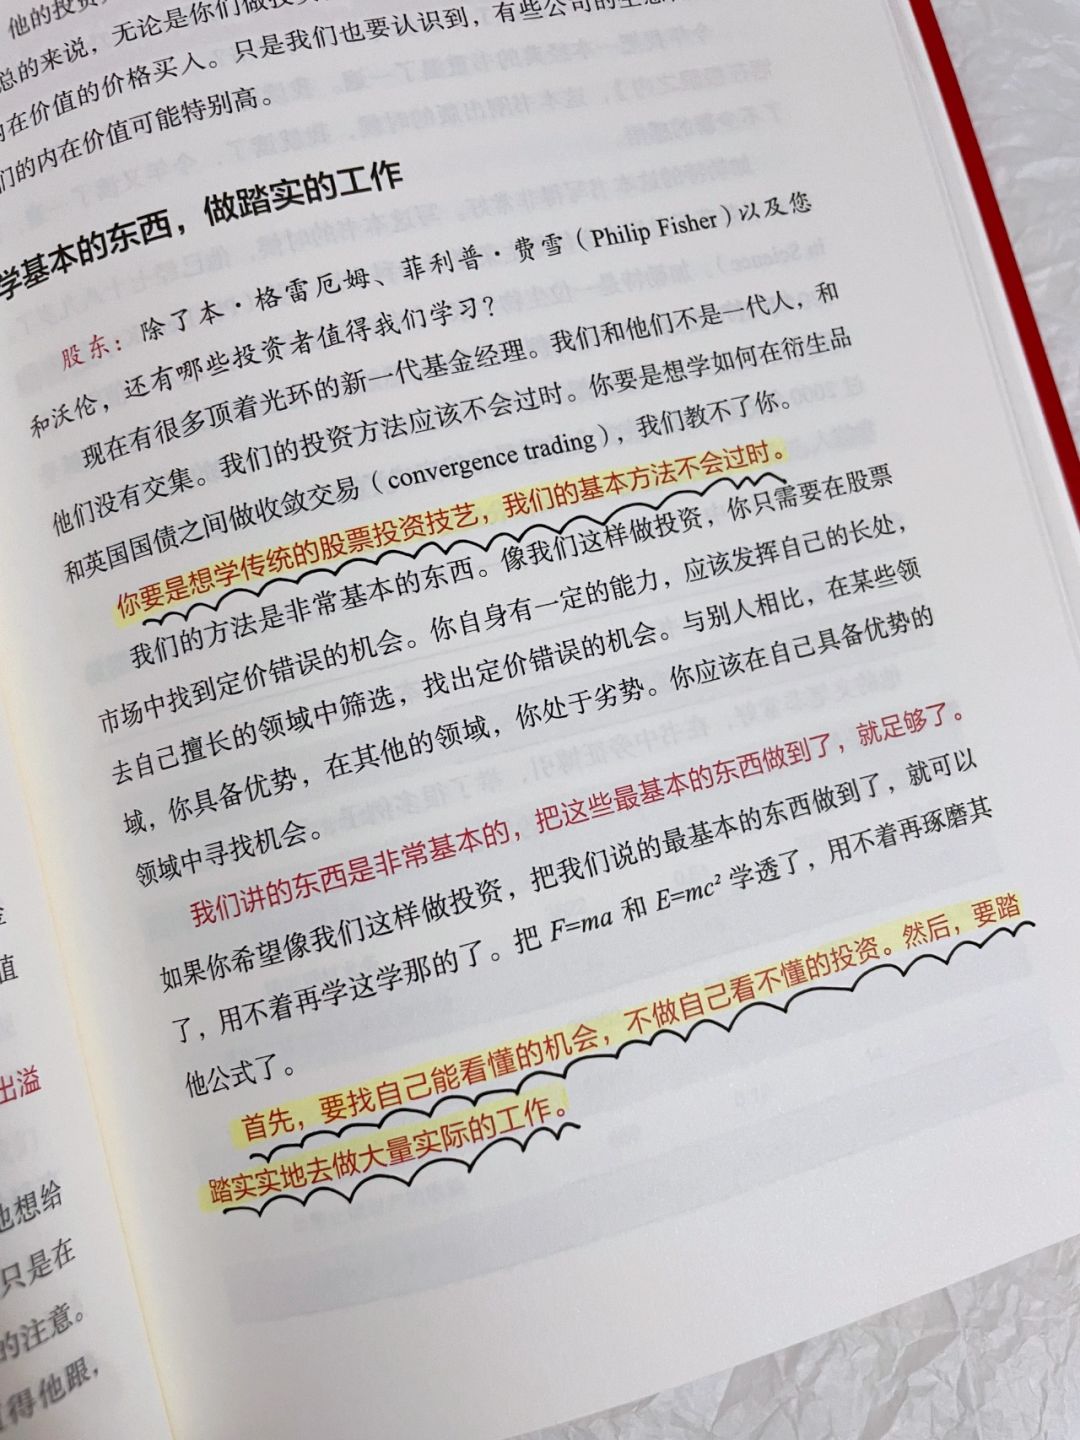 他的投资
总的来说，无论是你们做投资
内在价值的价格买入。只是我们也要认识到，有些公司的生意
们的内在价值可能特别高。
学基本的东西，做踏实的工作
股东：除了本·格雷厄姆、菲利普·费雪（Philip Fisher）以及您
和沃伦，还有哪些投资者值得我们学习？
现在有很多顶着光环的新一代基金经理。我们和他们不是一代人，和
他们没有交集。我们的投资方法应该不会过时。你要是想学如何在衍生品
和英国国债之间做收敛交易（convergence trading），我们教不了你。
你要是想学传统的股票投资技艺，我们的基本方法不会过时。
我们的方法是非常基本的东西。像我们这样做投资，你只需要在股票
市场中找到定价错误的机会。你自身有一定的能力，应该发挥自己的长处，
去自己擅长的领域中筛选，找出定价错误的机会。与别人相比，在某些领
域，你具备优势，在其他的领域，你处于劣势。你应该在自己具备优势的
领域中寻找机会。
我们讲的东西是非常基本的，把这些最基本的东西做到了，就足够了。
如果你希望像我们这样做投资，把我们说的最基本的东西做到了，就可以
了，用不着再学这学那的了。把 F=ma 和 E=mc² 学透了，用不着再琢磨其
他公式了。
首先，要找自己能看懂的机会，不做自己看不懂的投资。然后，要踏
踏实实地去做大量实际的工作。
值
出溢
也想给
只是在
的注意。
得他跟，